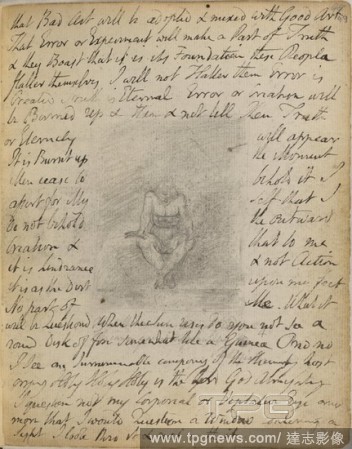 that Bad Art will be adopted & mixed with Good Art
That Error or Experiment will make a Part of Truth
& they Boast that it is its Foundation these People
flatter themselves I will not Flatter them Error is
Created Truth is Eternal Error or Creation will
be Burned Up & then & not till then Truth
or Eternity will appear
It is Burnt up the Moment
Men cease to behold it I
assert for My self that I
do not behold the Outward
Creation & that to me
it is hindrance & not Action
it is as the Dirt upon my feet
No part of Me. What it
will be Questiond When the Sun rises do you not see a
round Disk of fire somewhat like a Guinea O no no
I see an Innumerable company of the Heavenly host
crying Holy Holy Holy is the Lord God Almighty
I question not my Corporeal or Vegetative Eye any
more than I would Question a Window concerning a
Sight I look thro it &
TPG
www.tpgnews.com / 達志影像